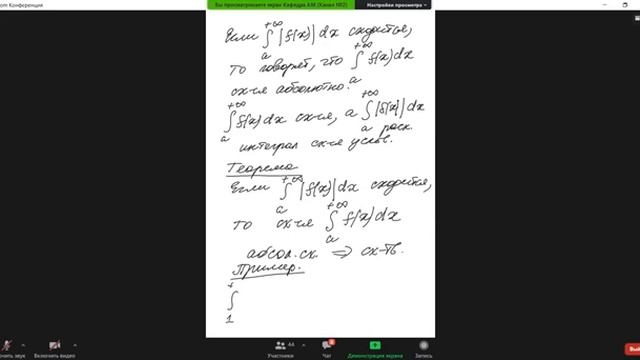 om Конференция
Вы просматриваете экран Кафедра АМ (Канал №2)
Настройки просмотра
Если ∫ₐ^{+∞} |f(x)| dx сходится,
то говорят, что ∫ₐ^{+∞} f(x)dx
сх-ся абсолютно.
∫ₐ^{+∞} f(x)dx сх-ся, а ∫ₐ^{+∞} |f(x)| dx расх.
интеграл сх-ся услов.
Теорема
Если ∫ₐ^{+∞} |f(x)| dx сходится,
то сх-ся ∫ₐ^{+∞} f(x)dx
абсол. сх. ⇒ сх-ть.
Пример.
∫₁^{+
чить звук
Включить видео
44
Участники
Чат
Демонстрация экрана
Запись